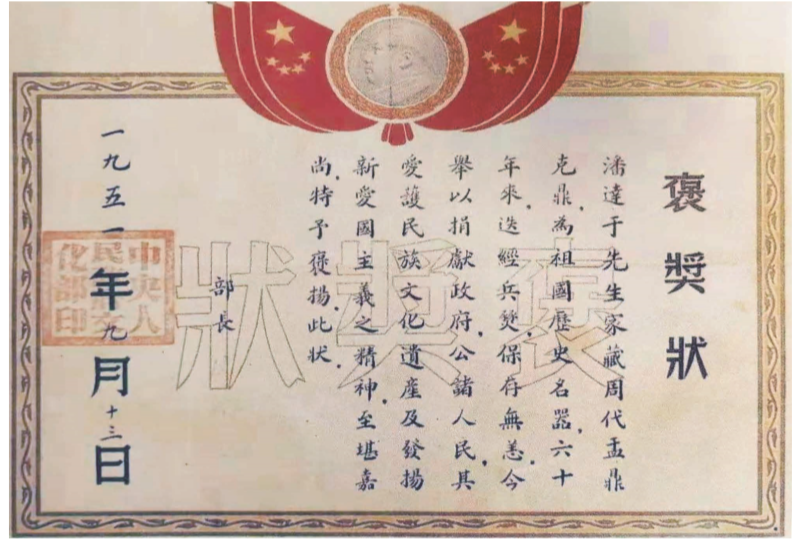 褒獎狀
潘達于先生家藏周代盂鼎
克鼎，為祖國歷史名器，六十
年來，迭經兵燹，保存無恙，今
舉以捐獻政府，公諸人民，其
愛護民族文化遺産及發揚
新愛國主義之精神，至堪嘉
尚，特予褒揚，此狀。
部長
一九五一年九月十三日
中央人
民文
化部印
褒獎狀